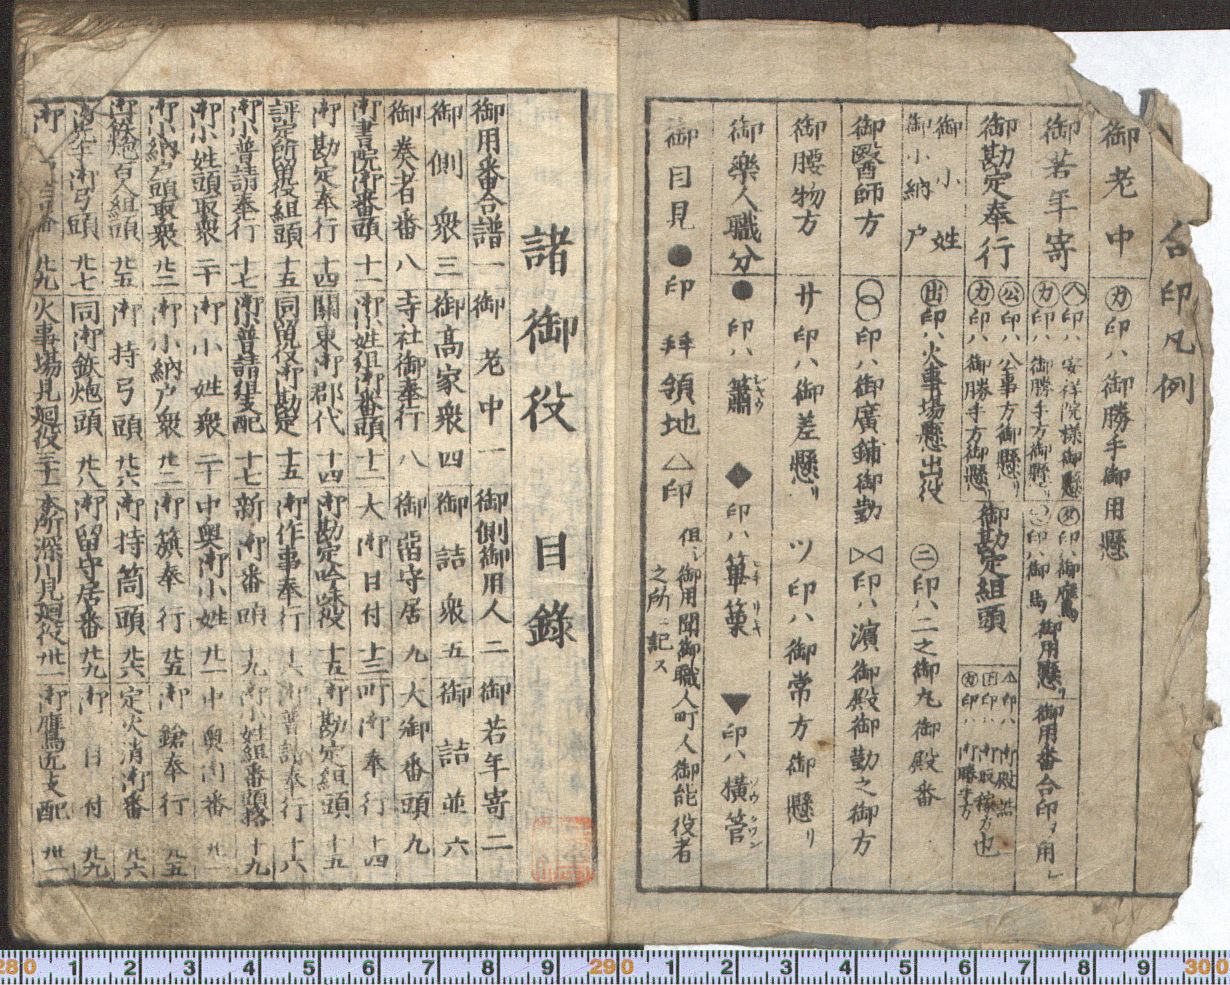 合印凡例
御老中 ㋕印ハ御勝手御用懸
御若年寄 ㋩印ハ安祥院様御懸 印ハ御鷹
㋕印ハ御勝手方御懸 印ハ御馬 御用懸リ 御用番合印ヲ用
御勘定奉行 公印ハ公事方御懸リ
㋕印ハ御勝手方御懸リ
御勘定組頭 印ハ御殿 印ハ御取 方也 印ハ御勝手方
御小姓
御小納戸 出印ハ火事場懸出役 ㊁印ハ二之御丸御殿番
御醫師方 印ハ御廣鋪御勤 印ハ濱御殿御勤之御方
御腰物方 サ印ハ御差懸リ ツ印ハ御常方御懸リ
御樂人職分 ●印ハ簫 ◆印ハ篳篥 ▼印ハ横管
御目見●印 拜領地△印 但シ御用聞御職人町人御能役者
之所ニ記ス
諸御役目錄
御用番合譜 一 御老中 一 御側御用人 二 御若年寄 二
御側衆 三 御高家衆 四 御詰衆 五 御詰並 六
御奏者番 八 寺社御奉行 八 御留守居 九 大御番頭 九
御書院御番頭 十一 御小姓組御番頭 十二 大御目付 十三 町御奉行 十四
御勘定奉行 十四 關東御郡代 十四 御勘定吟味役 十五 御勘定組頭 十五
評定所留役組頭 十五 同留役御勘定 十五 御作事奉行 十六 御普請奉行 十六
御小普請奉行 十七 御小普請組支配 十七 新御番頭 十九 御小姓組番頭格 十九
御小姓頭取衆 二十 御小姓衆 二十 中奥御小姓 廿一 中奥御番 廿一
御小納戸頭取衆 廿二 御小納戸衆 廿二 御籏奉行 廿五 御鎗奉行 廿五
御鉄炮百人組頭 廿五 御持弓頭 廿六 御持筒頭 廿六 定火消御番 廿六
御先手御弓頭 廿七 同御鉄炮頭 廿八 御留守居番 廿九 御目付 廿九
御 番 廿九 火事場見廻役 三十 本所深川見廻役 卅一 御鷹匠支配 卅一